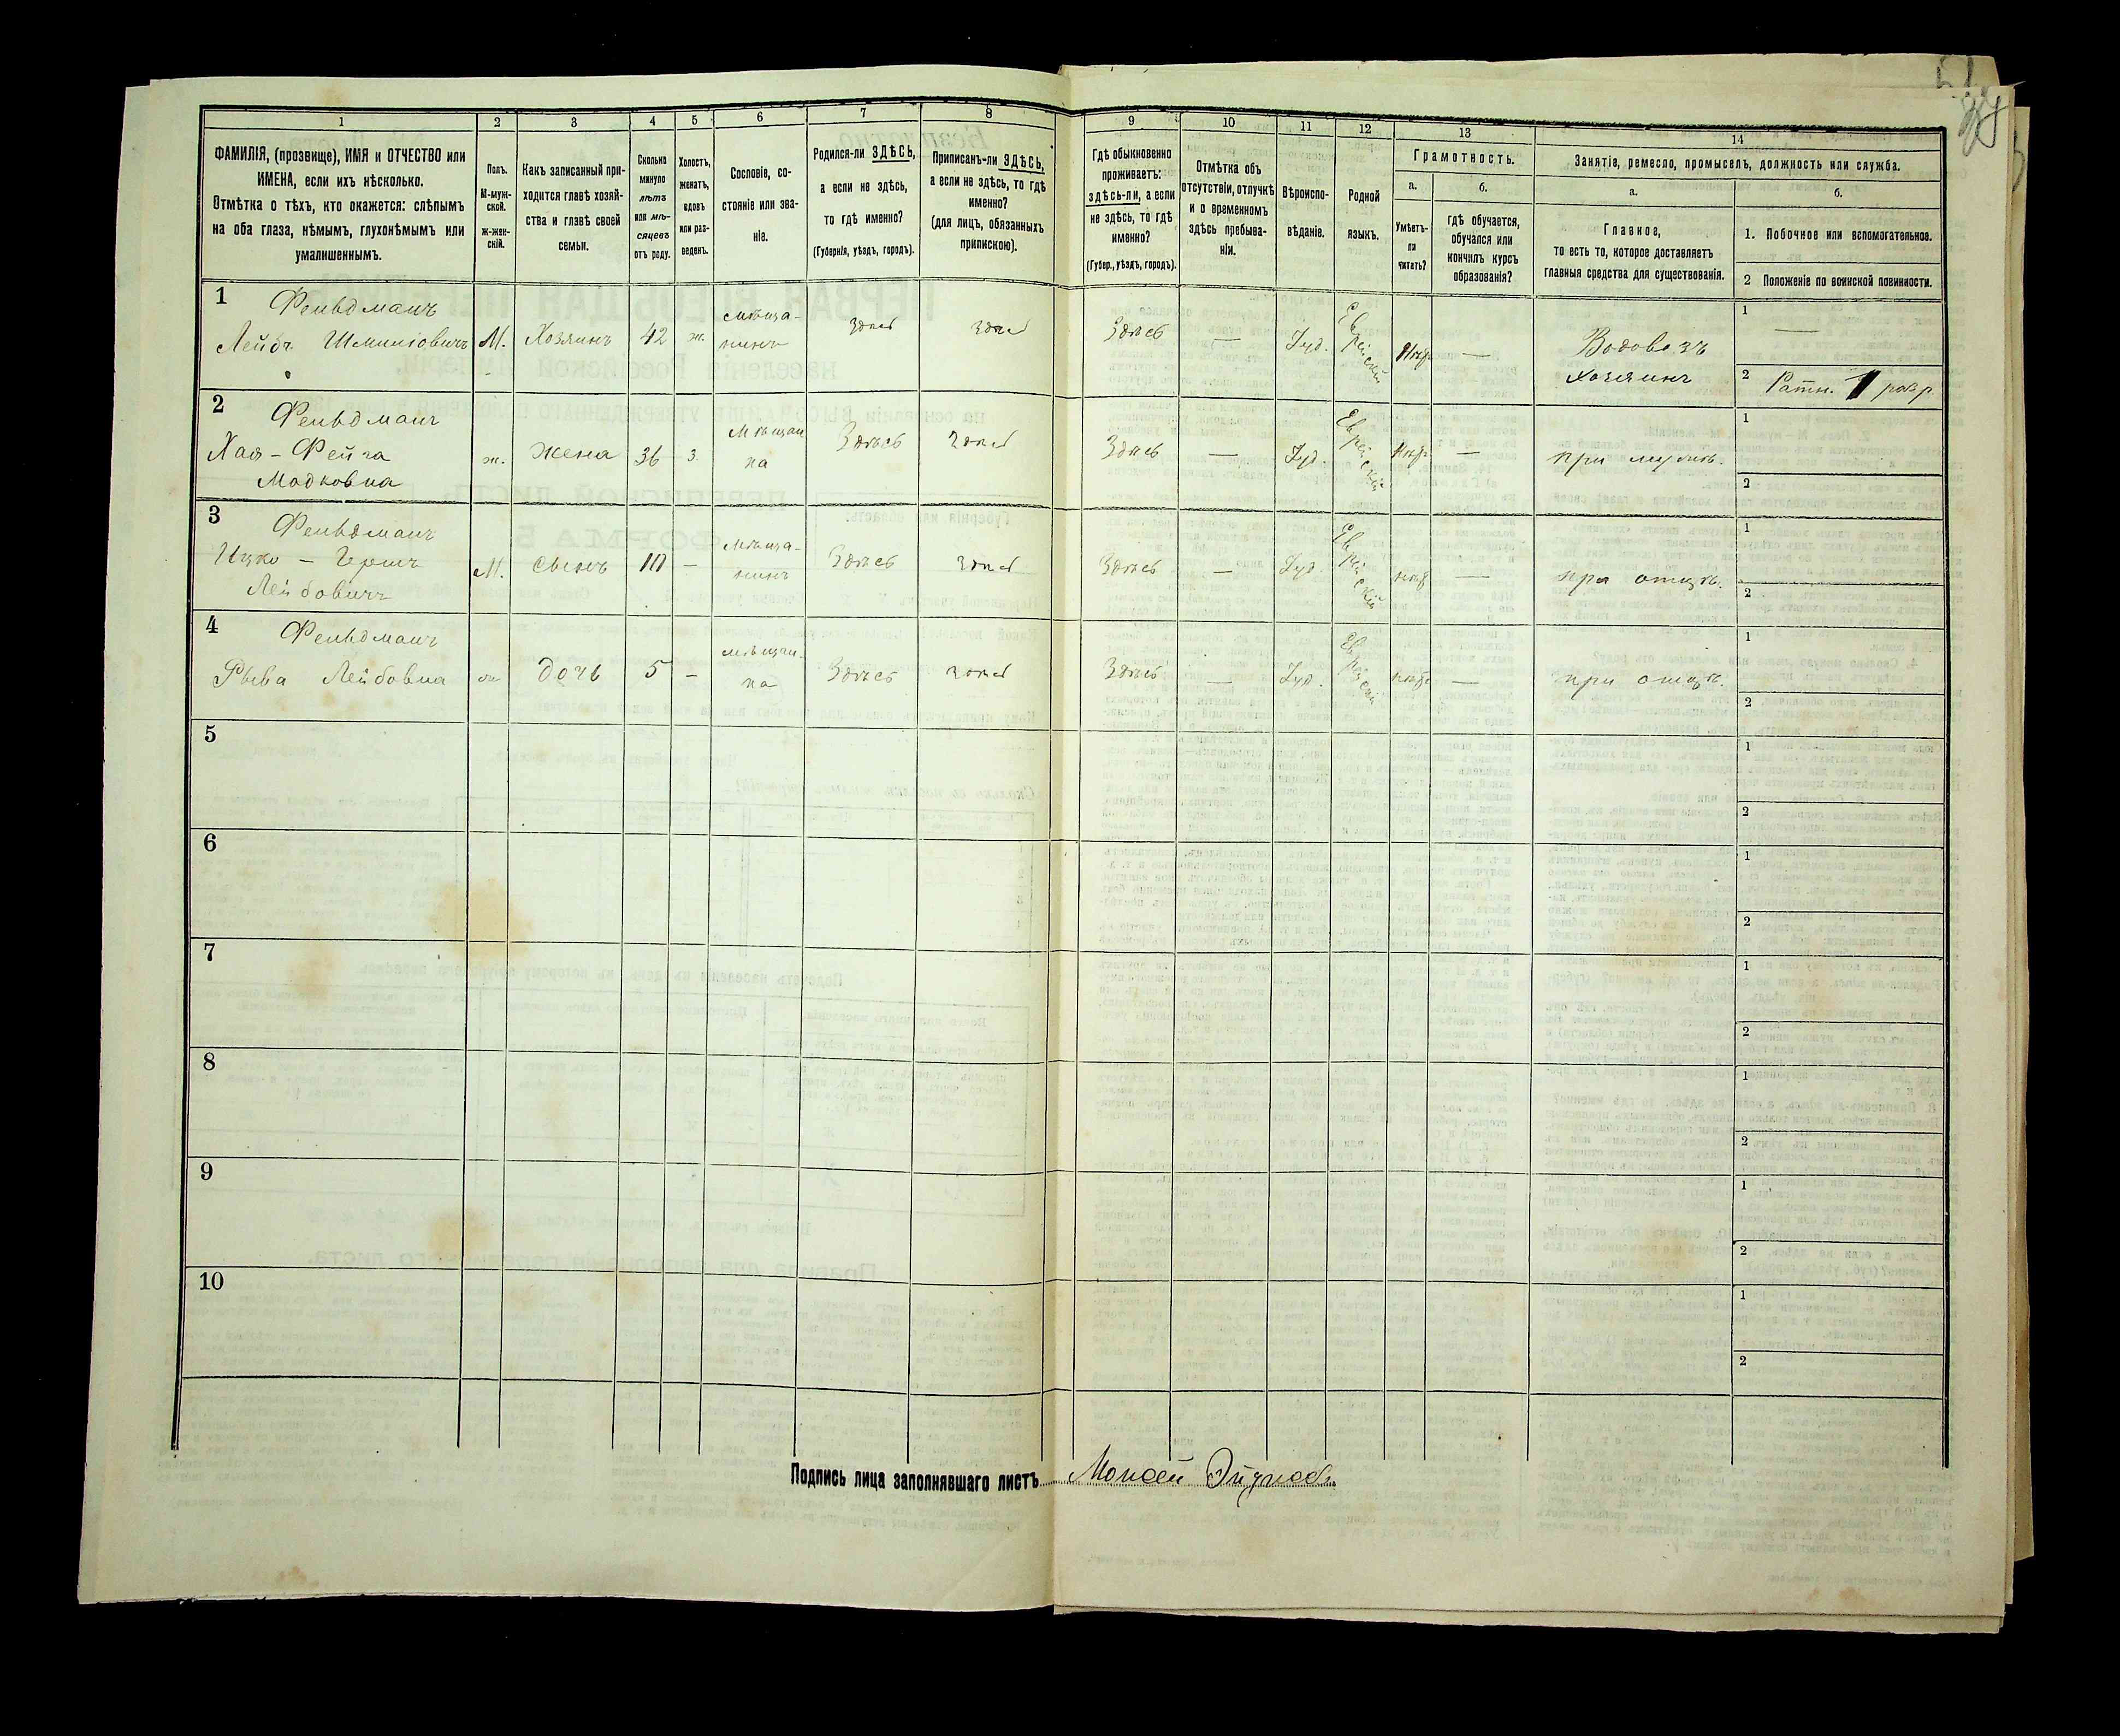 1 2 3 4 5 6 7 8 9 10 11 12 13 14
ФАМИЛІЯ, (прозвище), ИМЯ и ОТЧЕСТВО или
ИМЕНА, если ихъ нѣсколько.
Отмѣтка о тѣхъ, кто окажется: слѣпымъ
на оба глаза, нѣмымъ, глухонѣмымъ или
умалишеннымъ.
Полъ.
М-муж-
ской.
ж-жен-
скій.
Какъ записанный при-
ходится главѣ хозяй-
ства и главѣ своей
семьи.
Сколько
минуло
лѣтъ
или мѣ-
сяцевъ
отъ роду.
Холостъ,
женатъ,
вдовъ
или раз-
веденъ.
Сословіе, со-
стояніе или зва-
ніе.
Родился-ли ЗДѢСЬ,
а если не здѣсь,
то гдѣ именно?
(Губернія, уѣздъ, городъ).
Приписанъ-ли ЗДѢСЬ,
а если не здѣсь, то гдѣ
именно?
(для лицъ, обязанныхъ
припискою).
Гдѣ обыкновенно
проживаетъ:
здѣсь-ли, а если
не здѣсь, то гдѣ
именно?
(Губер., уѣздъ, городъ).
Отмѣтка объ
отсутствіи, отлучкѣ
и о временномъ
здѣсь пребыва-
ніи.
Вѣроиспо-
вѣданіе.
Родной
языкъ.
Грамотность.
а.
Умѣетъ-
ли
читать?
б.
гдѣ обучается,
обучался или
кончилъ курсъ
образованія?
Занятіе, ремесло, промыселъ, должность или служба.
а.
Главное,
то есть то, которое доставляетъ
главныя средства для существованія.
б.
1. Побочное или вспомогательное.
2 Положеніе по воинской повинности.
1
Фельдманъ
Лейба Шмилiовичъ
М.
Хозяинъ
42
ж.
мѣща-
нинъ
Здѣсь
здѣсь
Здѣсь
—
Іуд.
Еврейскій
Нѣт
—
Водовозъ
хозяинъ
1 —
2 Ратн. 1 разр.
2
Фельдманъ
Хая-Фейга
Мадковна
ж.
Жена
36
з.
Мѣщан
ка
Здѣсь
здѣсь
Здѣсь
—
Іуд.
Еврейскій
Нѣт
—
при мужѣ.
1
2
3
Фельдманъ
Ицко - Гершъ
Лейбовичъ
М.
Сынъ
10
—
мѣща-
нинъ
Здѣсь
здѣсь
Здѣсь
—
Іуд.
Еврейскій
нѣт
—
при отцѣ.
1
2
4
Фельдманъ
Рыва Лейбовна
ж
дочь
5
—
мѣщан-
ка
Здѣсь
здѣсь
Здѣсь
—
Іуд.
Еврейскій
нѣт
—
при отцѣ.
1
2
5
1
2
6
1
2
7
1
2
8
1
2
9
1
2
10
1
2
Подпись лица заполнявшаго листъ Моисей